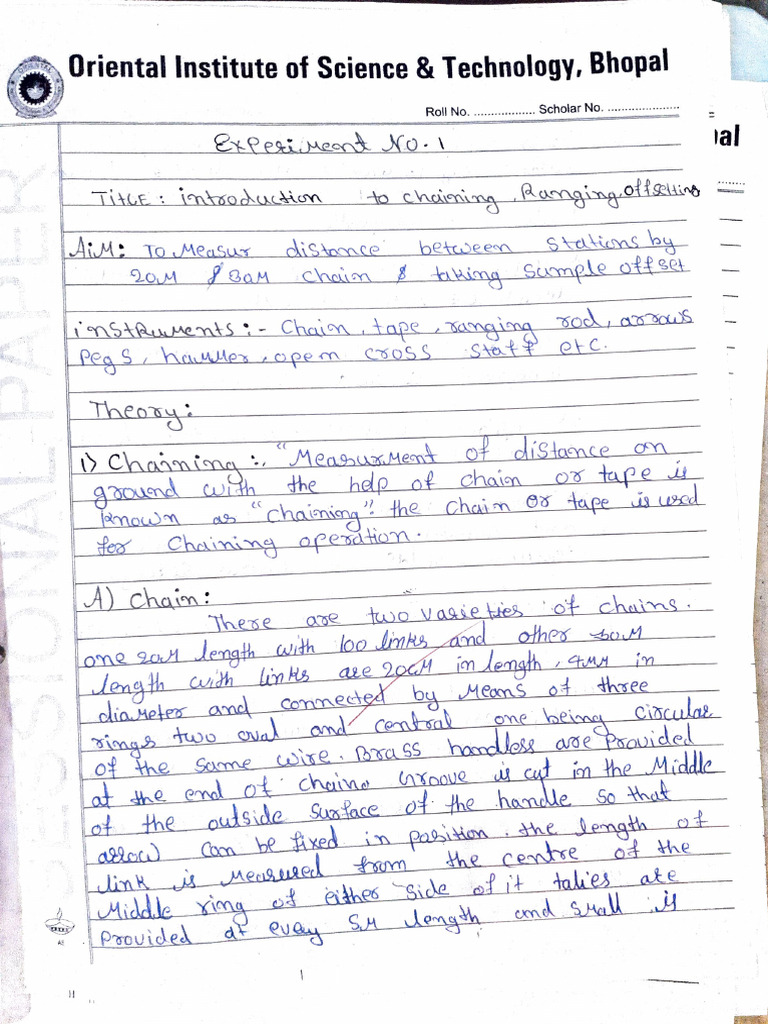 Oriental Institute of Science & Technology, Bhopal
Roll No. ................. Scholar No. .....................
Experiment No. 1
TITLE: introduction to chaining, Ranging, offsetting
AiM: To Measur distance between stations by
20M & 30M Chain & taking sample offset
instruments:- Chain, tape, ranging rod, arrows
Pegs, hammer, open cross staff etc.
Theory:
1) Chaining:- "Measurment of distance on
ground with the help of chain or tape is
known as "Chaining". the chain or tape is used
for Chaining operation.
A) Chain:
There are two varieties of chains.
one 20M length with 100 links and other 30M
length with links are 20cM in length, 4MM in
diameter and connected by means of three
rings two oval and central one being circular
of the same wire. Brass handless are Provided
at the end of chain. Groove is cut in the Middle
of the outside surface of the handle so that
arrow can be fixed in position. the length of
link is Measured from the centre of the
Middle ring of either side of it talies are
Provided at every 5M length and small is
1
SESSIONAL PAPER
pal
ORIENTAL